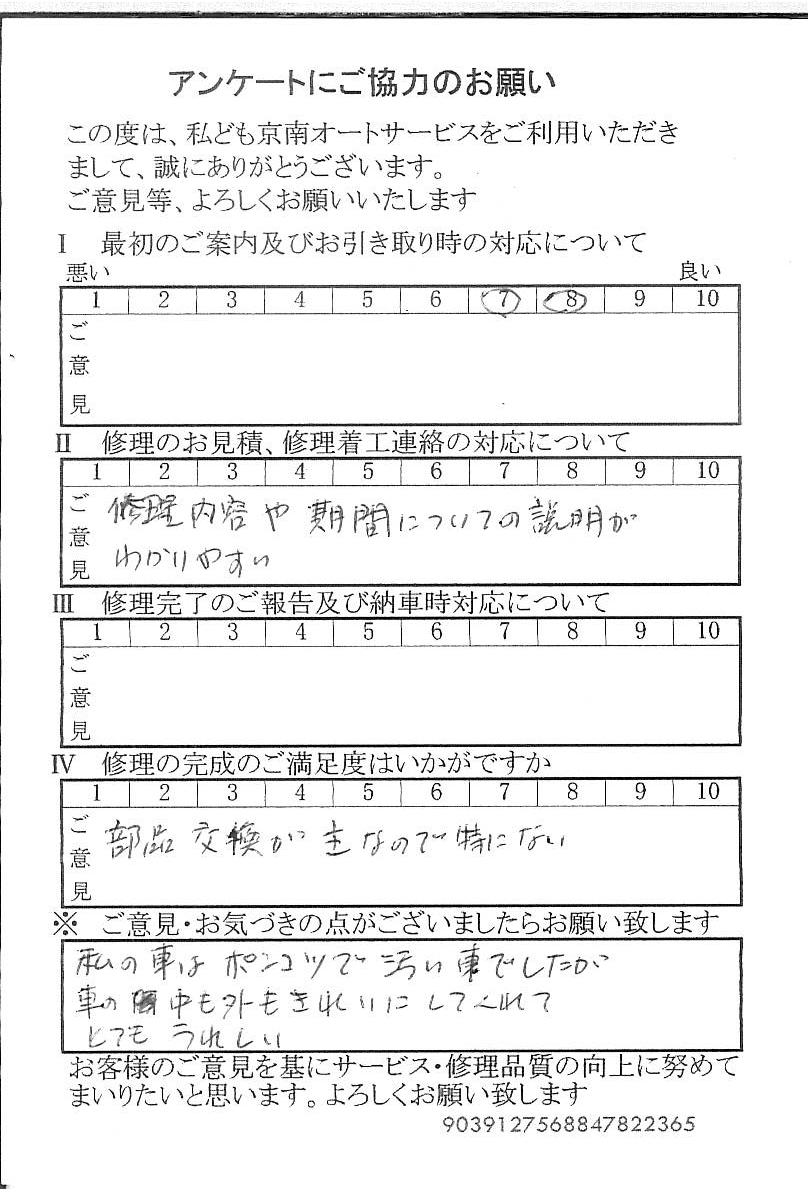 アンケートにご協力のお願い
この度は、私ども京南オートサービスをご利用いただき
まして、誠にありがとうございます。
ご意見等、よろしくお願いいたします
Ⅰ 最初のご案内及びお引き取り時の対応について
悪い 良い
1 2 3 4 5 6 7 8 9 10
ご意見
Ⅱ 修理のお見積、修理着工連絡の対応について
1 2 3 4 5 6 7 8 9 10
ご意見
修理内容や期間についての説明が
わかりやすい
Ⅲ 修理完了のご報告及び納車時対応について
1 2 3 4 5 6 7 8 9 10
ご意見
Ⅳ 修理の完成のご満足度はいかがですか
1 2 3 4 5 6 7 8 9 10
ご意見
部品交換が主なので特にない
※ ご意見・お気づきの点がございましたらお願い致します
私の車はポンコツで汚い車でしたが
車の中も外もきれいにしてくれて
とてもうれしい
お客様のご意見を基にサービス・修理品質の向上に努めて
まいりたいと思います。よろしくお願い致します
9039127568847822365